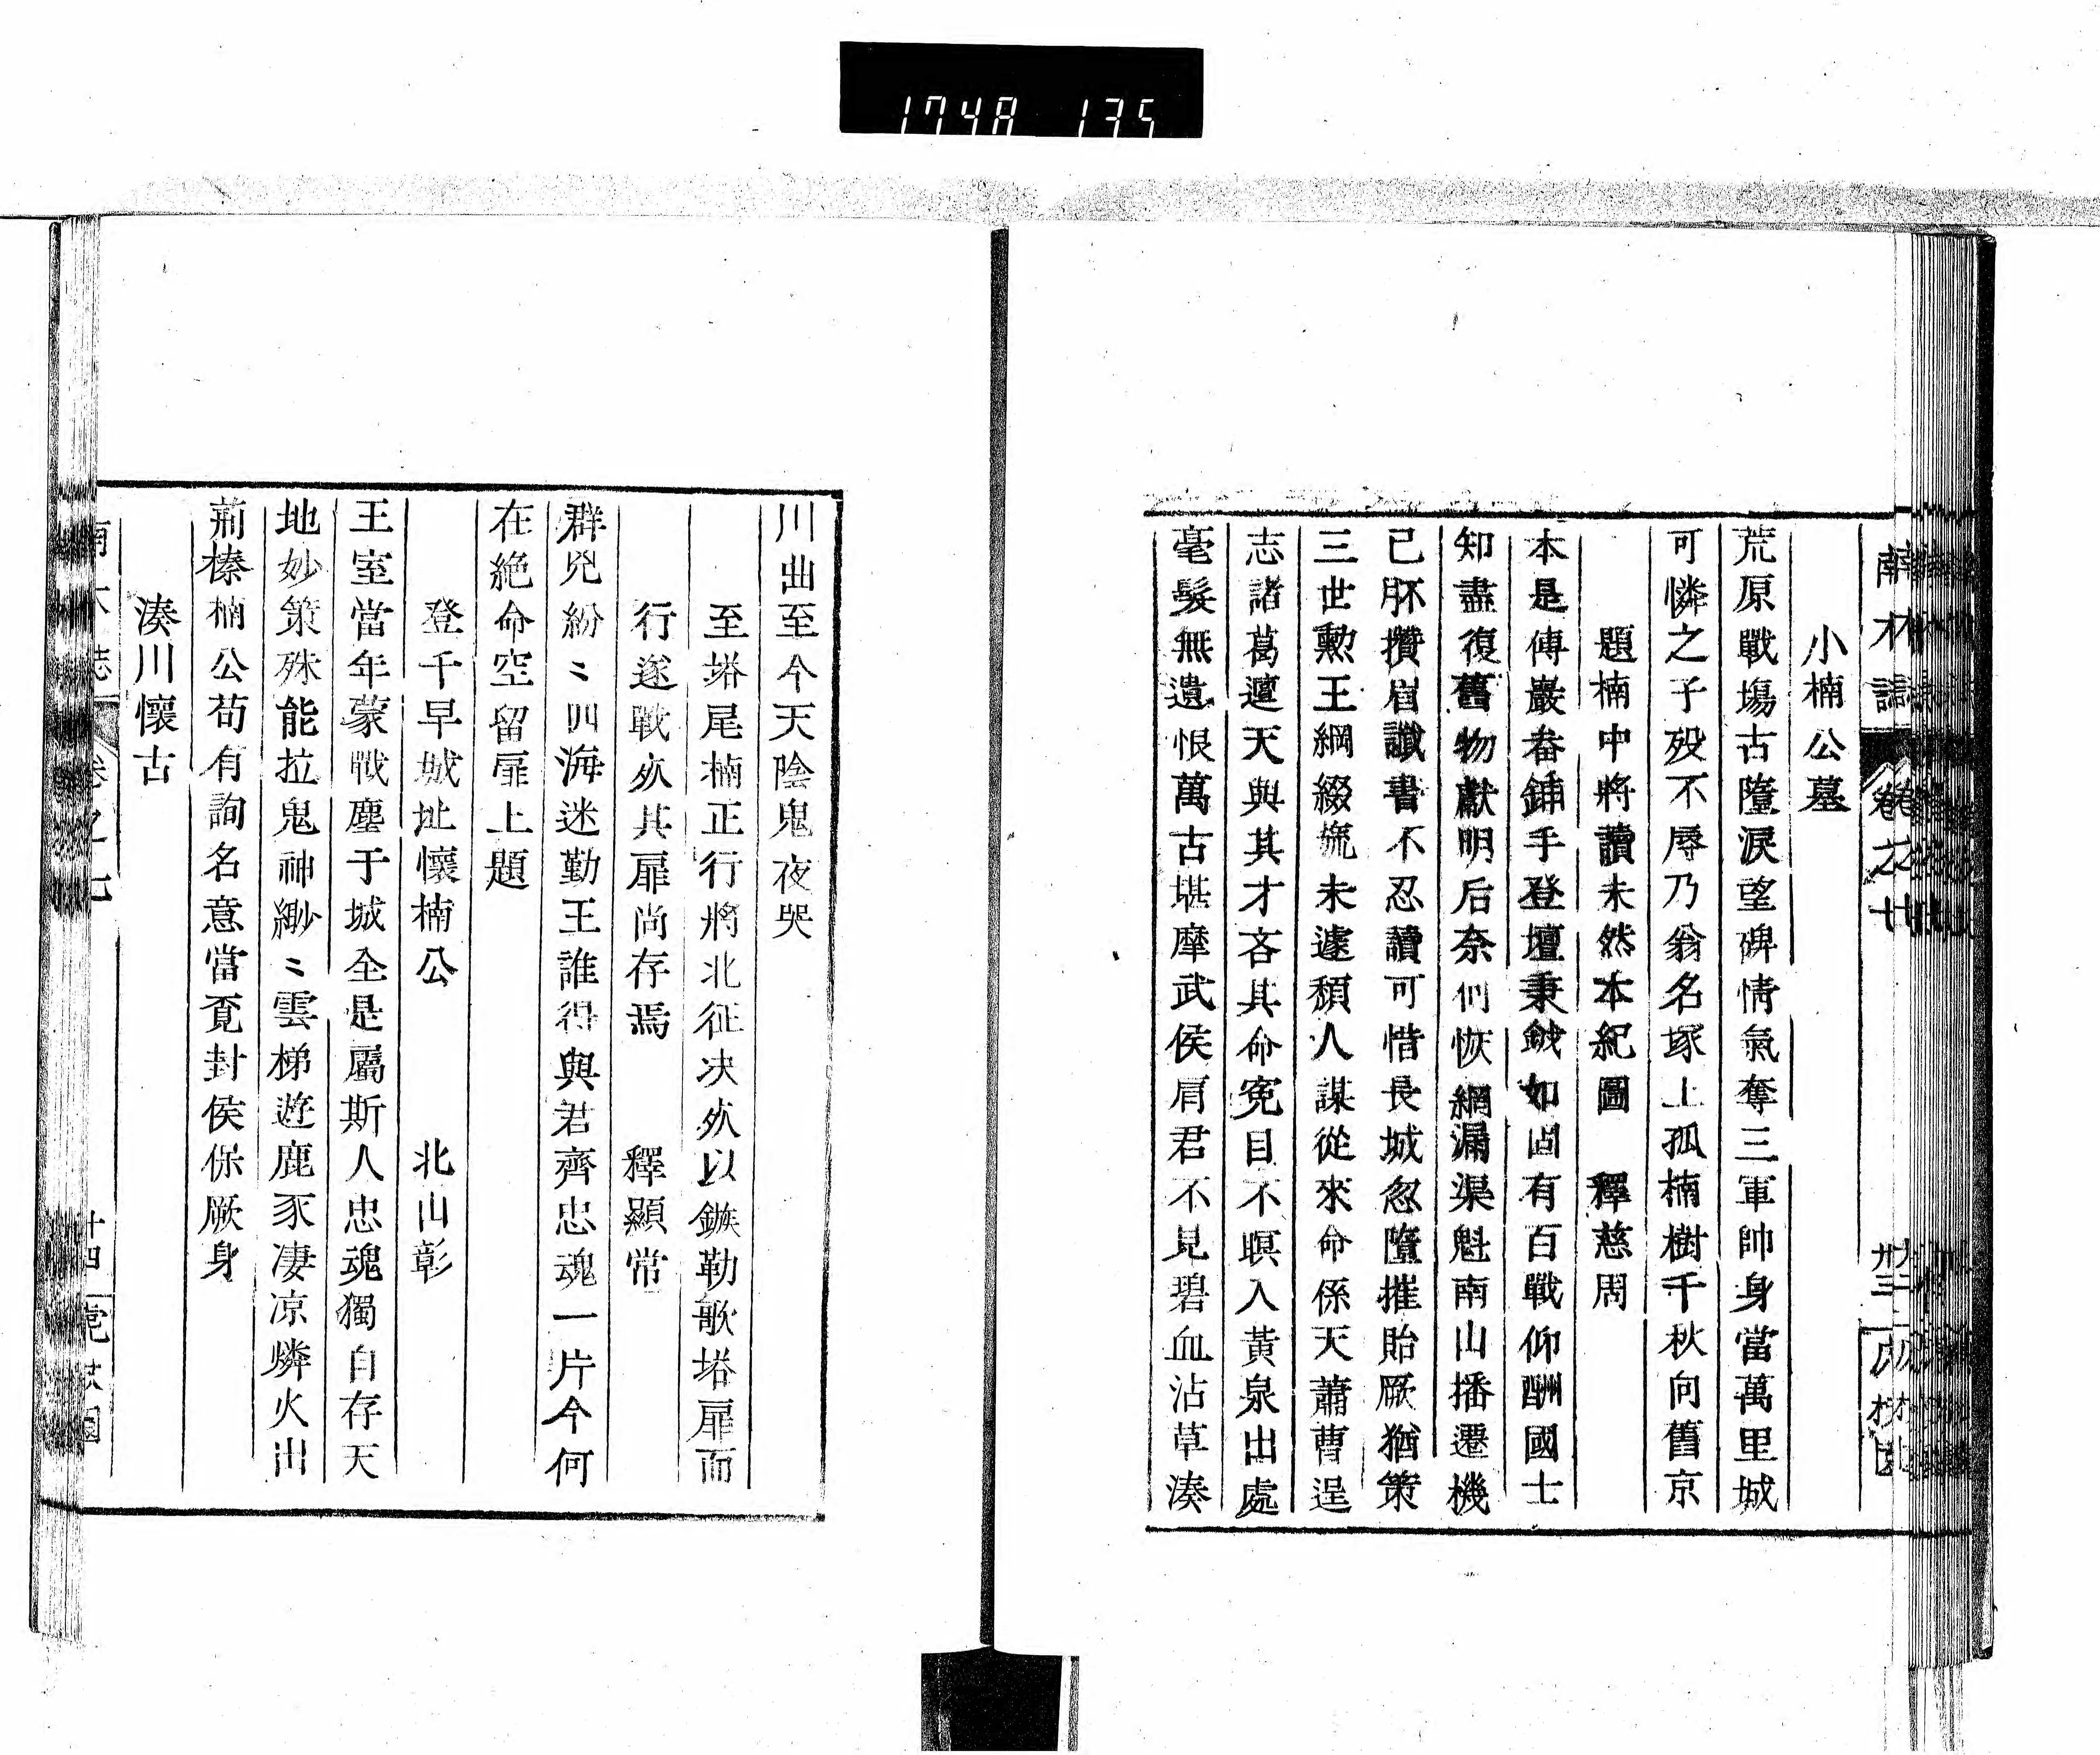 1748 135
小楠公墓
荒原戰塲古墮淚望碑情氣奪三軍帥身當萬里城
可憐之子歿不辱乃翁名塚上孤楠樹千秋向舊京
題楠中將讀未然本紀圖　釋慈周
本是傅巖畚鍤手登壇秉鉞如固有百戰仰酬國士
知盡復舊物獻明后奈何恢網漏渠魁南山播遷機
已胚攢眉讖書不忍讀可惜長城忽墮摧貽厥猶策
三世勳王綱綴旒未遽頹人謀從來命係天蕭曹逞
志諸葛邅天與其才吝其命寃目不瞑入黃泉出處
毫髮無遺恨萬古堪摩武侯肩君不見碧血沾草湊
川曲至今天陰鬼夜哭
至塔尾楠正行將北征决死以鏃勒歌塔扉而
行遂戰死其扉尚存焉　釋顯常
群兇紛〻四海迷勤王誰得與君齊忠魂一片今何
在絶命空留扉上題
登千早城址懷楠公　北山彰
王室當年蒙戰塵于城全是屬斯人忠魂獨自存天
地妙策殊能拉鬼神緲〻雲梯遊鹿豕凄凉燐火出
荊榛楠公苟有詢名意當覓封侯保厥身
湊川懷古
南木誌　卷之七　十四